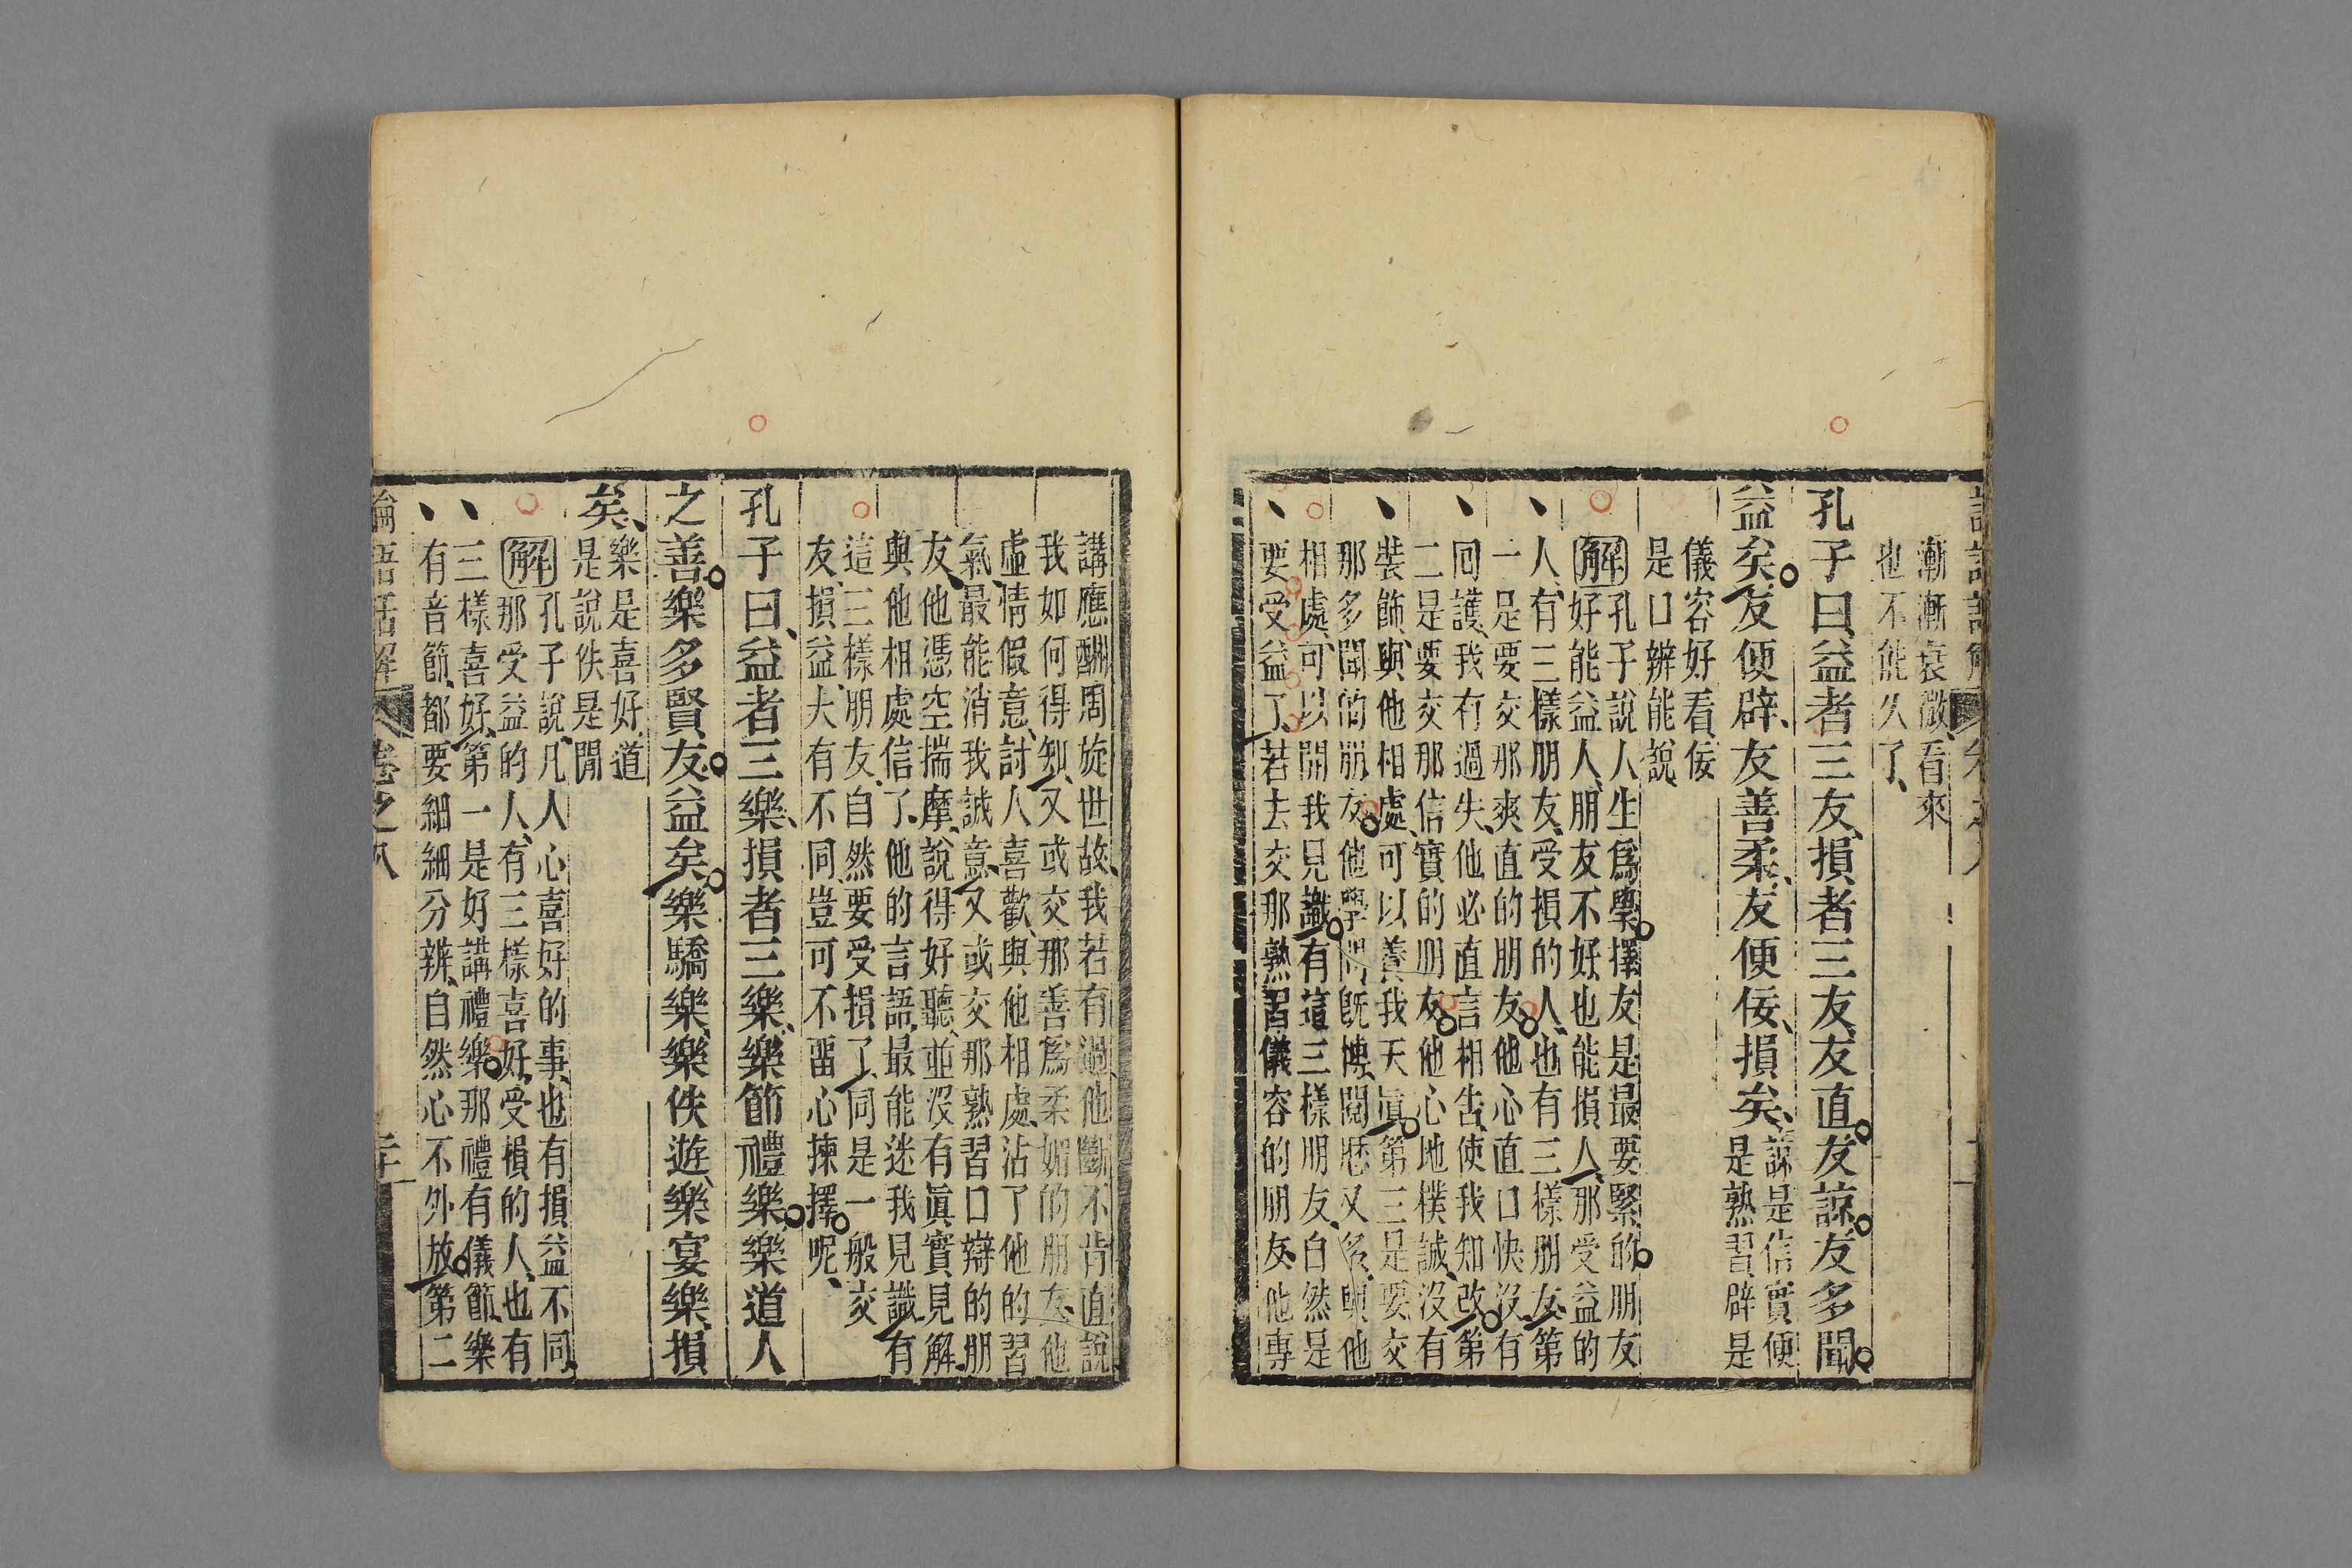 漸漸衰微、看來
也不能久了、
孔子曰、益者三友、損者三友、友直、友諒、友多聞、
益矣、友便辟、友善柔、友便佞、損矣、諒是信實便
是熟習、辟是
儀容好看、佞
是口辨能說、
解孔子說人生爲學、擇友是最要緊的、朋友
好能益人、朋友不好、也能損人、那受益的
人、有三樣朋友、受損的人、也有三樣朋友、第
一是要交那爽直的朋友、他心直口快、沒有
囘護、我有過失、他必直言相告、使我知改、第
二是要交那信實的朋友、他心地樸誠、沒有
裝飾、與他相處、可以養我天眞、第三是要交
那多聞的朋友、他學問旣博、閱歷又多、與他
相處、可以開我見識、有這三樣朋友、自然是
要受益了、若去交那熟習儀容的朋友、他專
講應酬周旋世故、我若有過、他斷不肯直說、
我如何得知、又或交那善爲柔媚的朋友、他
虛情假意、討人喜歡、與他相處、沾了他的習
氣、最能消我誠意、又或交那熟習口辯的朋
友、他憑空揣摩、說得好聽、並沒有眞實見解、
與他相處、信了他的言語、最能迷我見識、有
這三樣朋友、自然要受損了、同是一般交
友、損益大有不同、豈可不畱心揀擇呢、
孔子曰、益者三樂、損者三樂、樂節禮樂、樂道人
之善、樂多賢友、益矣、樂驕樂、樂佚遊、樂宴樂、損
矣、樂是喜好、道
是說、佚是閒
解孔子說、凡人心喜好的事、也有損益不同、
那受益的人、有三樣喜好、受損的人、也有
三樣喜好、第一是好講禮樂、那禮有儀節、樂
有音節、都要細細分辨、自然心不外放、第二
論語話解 卷之八